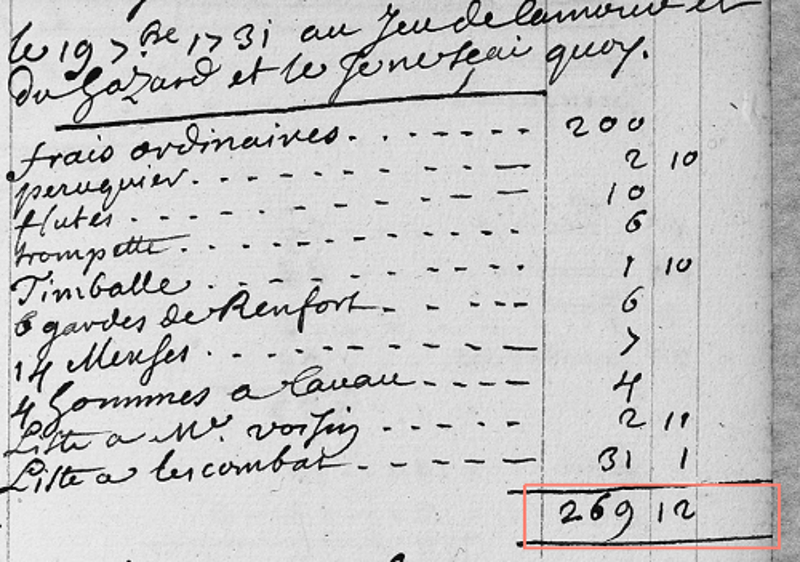 le 19 7bre 1731 au Jeu de lamour et
du hazard et le Je ne scai quoy.
frais ordinaires. 200
peruquier. 2 10
flutes. 10
trompette. 6
Timballe. 1 10
6 gardes de Renfort 6
14 Menses. 7
4 hommes a Cauau 4
Liste a Mr. voisin 2 11
Liste a lescombat 31 1
269 12